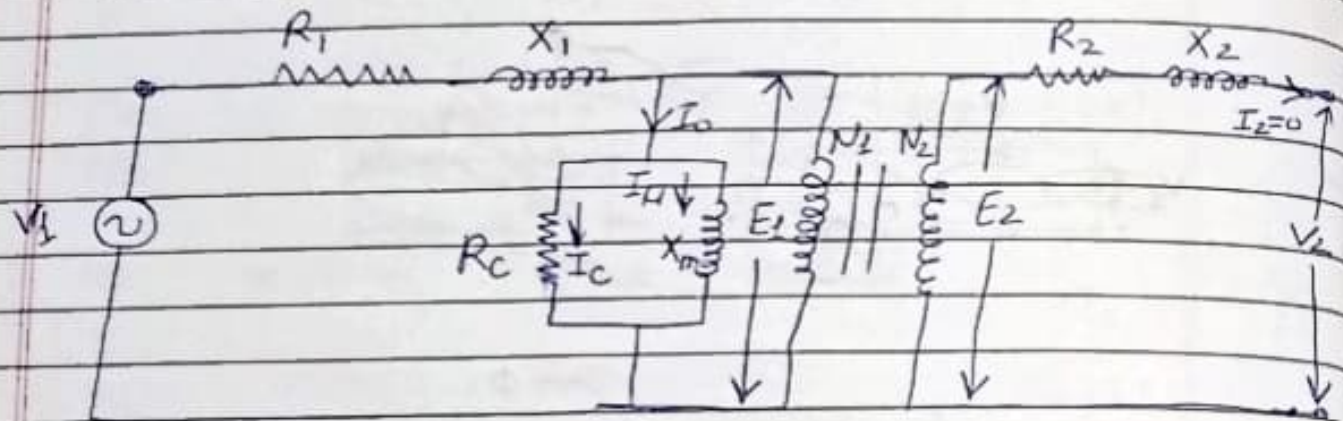 R₁ X₁ R₂ X₂
I₀ I₂=0
N₁ N₂
V₁ Iμ E₁ E₂
R_C I_C X_m V₂